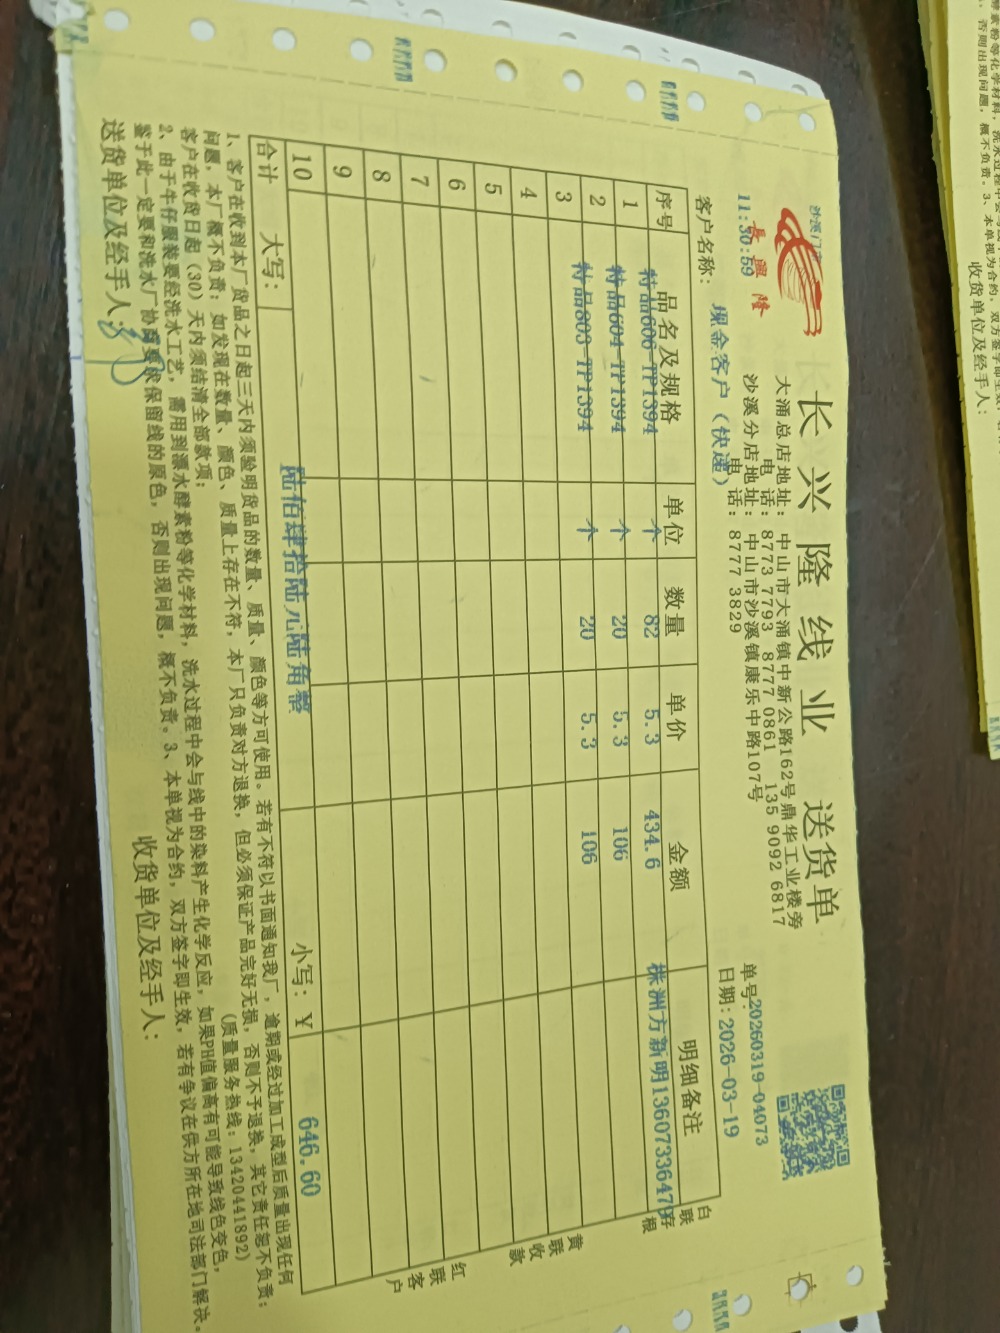 长兴隆线业 送货单
沙溪门
11:30:59
長興隆
大涌总店地址: 中山市大涌镇中新公路162号鼎华工业楼旁
电 话: 8773 7793 8777 0861 135 9092 6817
沙溪分店地址: 中山市沙溪镇康乐中路107号
电 话: 8777 3829
单号: 20260319-04073
客户名称: 现金客户(快递)
日期: 2026-03-19
序号 品名及规格 单位 数量 单价 金额 明细备注
1 特品606-TP1394 个 82 5.3 434.6 株洲方新明13607336479
2 特品604-TP1394 个 20 5.3 106
3 特品803-TP1394 个 20 5.3 106
4
5
6
7
8
9
10
合计 大写: 陆佰肆拾陆元陆角整 小写: ¥ 646.60
白联存根
黄联收款
红联客户
1、客户在收到本厂货品之日起三天内须验明货品的数量、质量、颜色等方可使用。若有不符以书面通知我厂,逾期或经过加工成型后质量出现任何
问题,本厂概不负责:如发现在数量、颜色、质量上存在不符,本厂只负责对方退换,但必须保证产品完好无损,否则不予退换,其它责任恕不负责:
客户在收货日起(30)天内须结清全部款项: (质量服务热线: 13420441892)
2、由于牛仔服装要经洗水工艺,需用到漂水酵素粉等化学材料,洗水过程中会与线中的染料产生化学反应,如果PH值偏高有可能导致线色变色,
鉴于此一定要和洗水厂协商要求保留线的原色,否则出现问题,概不负责。3、本单视为合约,双方签字即生效,若有争议在供方所在地司法部门解决。
送货单位及经手人: 收货单位及经手人:
素粉等化学材料,洗水过程中会
否则出现问题,概不负责。3、本单视为合约,双方签字即生效
收货单位及经手人: